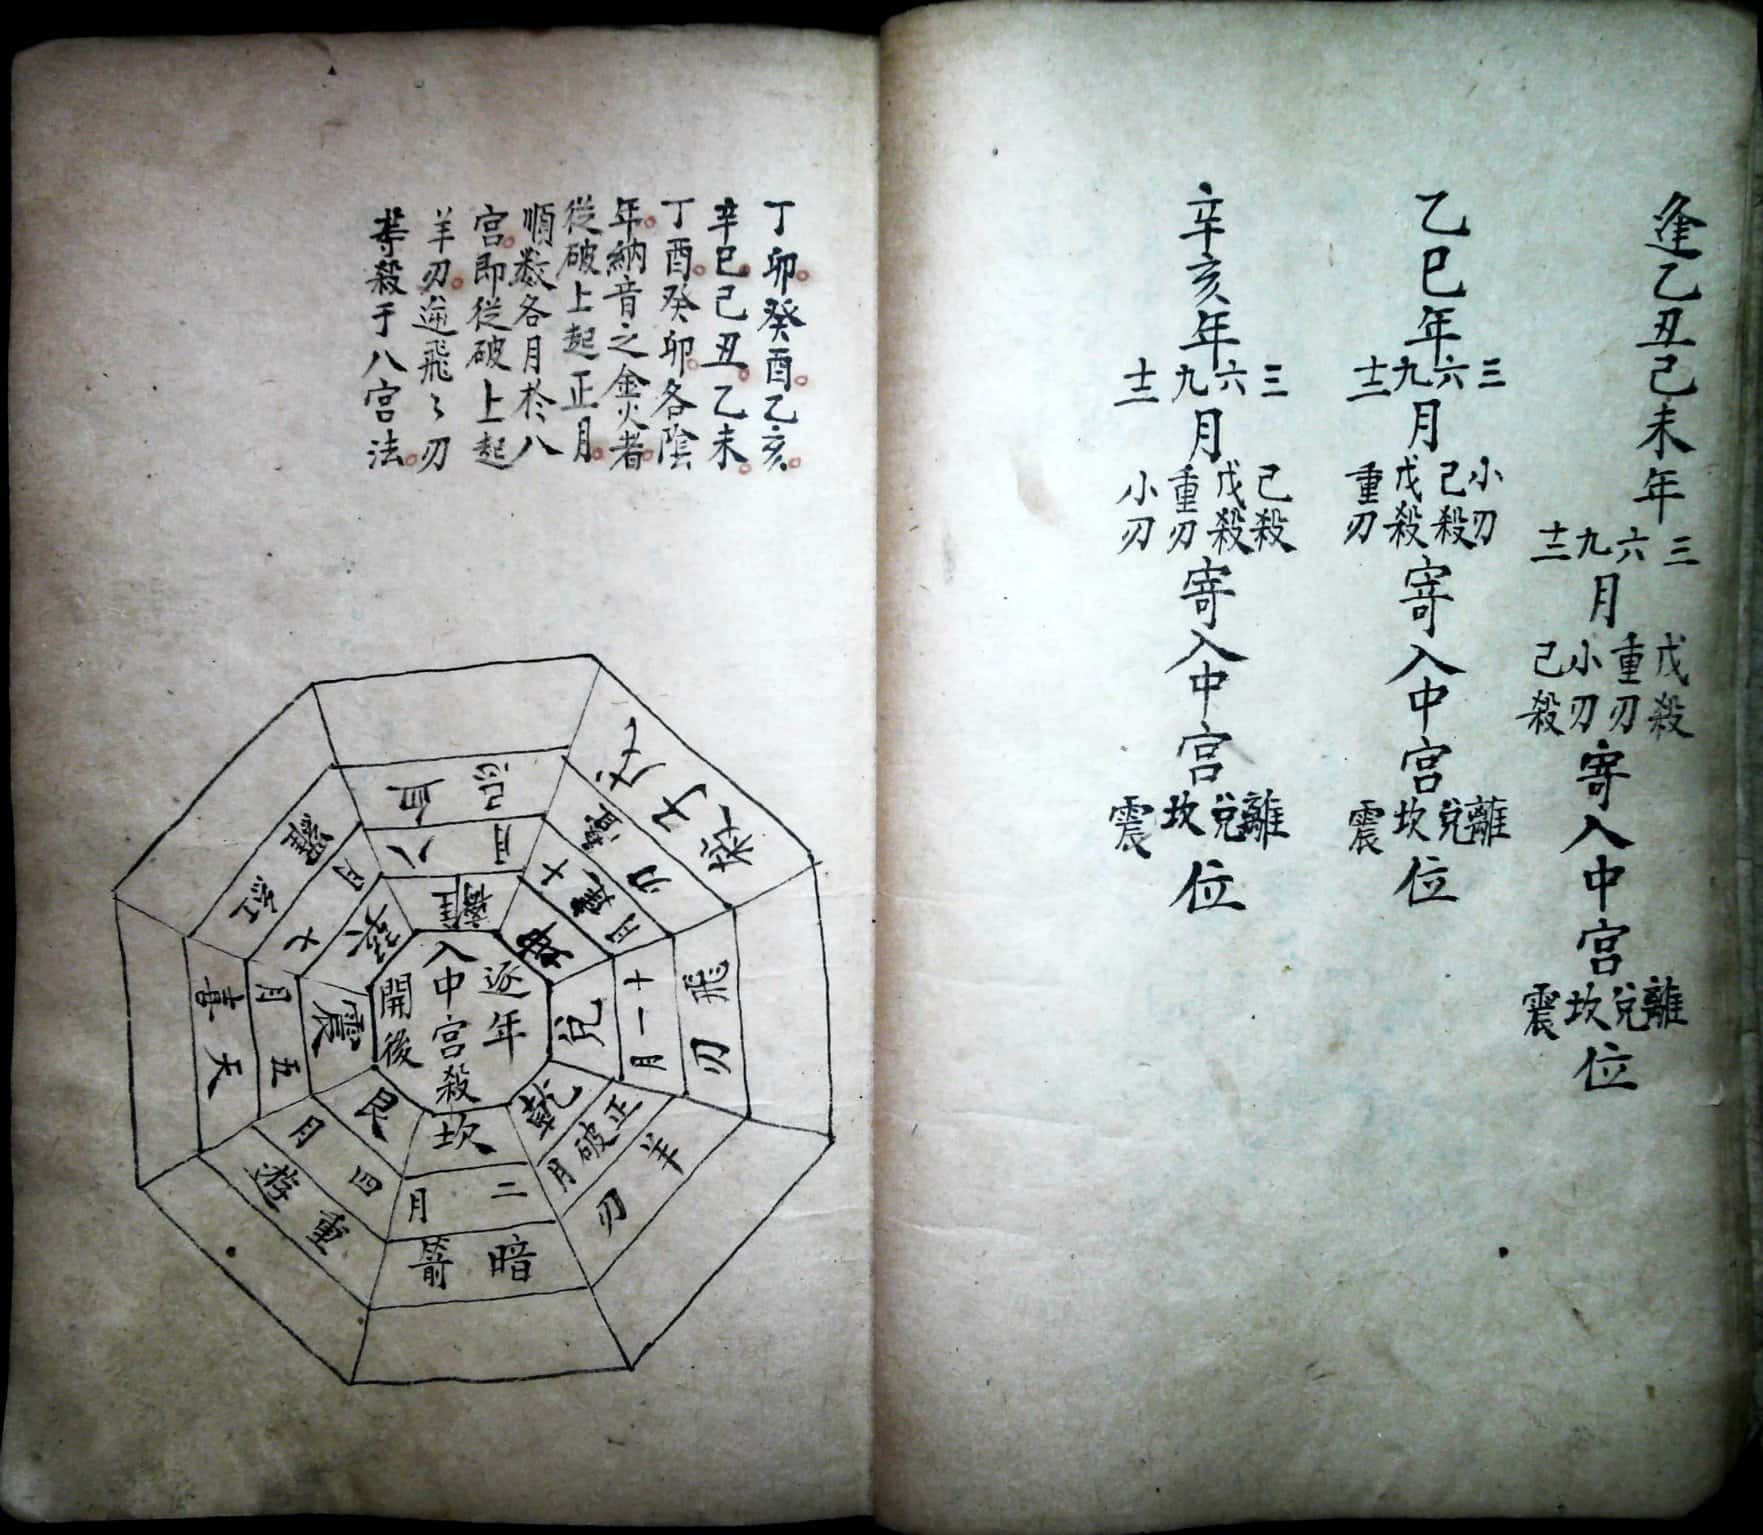 逢乙丑己未年
三六九十二
月
戊殺重刃小刃己殺
寄入中宮
離兌坎震
位
乙巳年
三六九十二
月
小刃己殺戊殺重刃
寄入中宮
離兌坎震
位
辛亥年
三六九十二
月
己殺戊殺重刃小刃
寄入中宮
離兌坎震
位
丁卯癸酉乙亥
辛巳己丑乙未
丁酉癸卯各陰
年納音之金火者
從破上起正月
順数各月於八
宮即從破上起
羊刃逆飛〻刃
等殺于八宮法
逐年
入中宮殺
開後
離
八月
忌血
坤
十月
兌
十一月
飛刃
乾
正月
破
羊刃
坎
二月
暗箭
艮
四月
重遊
震
五月
天喜
巽
七